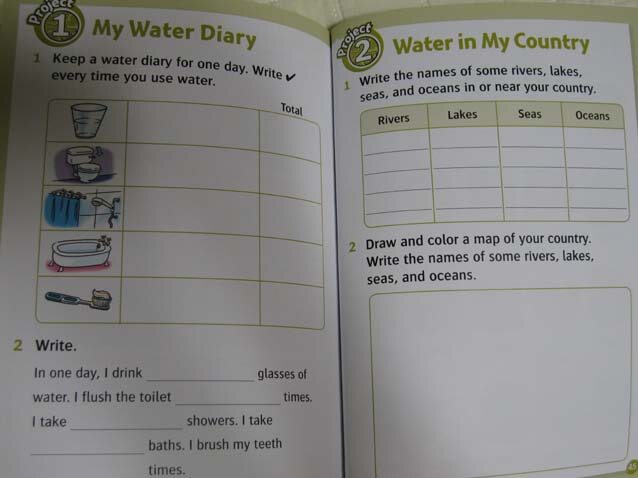 Project
1
My Water Diary
1 Keep a water diary for one day. Write ✔
every time you use water.
Total
2 Write.
In one day, I drink ____________ glasses of
water. I flush the toilet ____________ times.
I take ____________ showers. I take
____________ baths. I brush my teeth
times.
Project
2
Water in My Country
1 Write the names of some rivers, lakes,
seas, and oceans in or near your country.
Rivers Lakes Seas Oceans
2 Draw and color a map of your country.
Write the names of some rivers, lakes,
seas, and oceans.